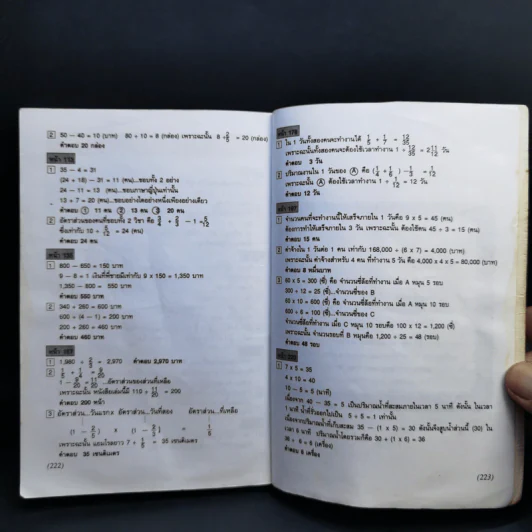 2 50 − 40 = 10 (บาท) 80 + 10 = 8 (กล่อง) เพราะฉะนั้น = 20 (กล่อง)
คำตอบ 20 กล่อง
หน้า
1 35 − 4 = 31
(24 + 18) − 31 = 11 (คน)...ชอบทั้ง 2 อย่าง
24 − 11 = 13 (คน)...ชอบภาษาญี่ปุ่นเท่านั้น
13 + 7 = 20 (คน)...ชอบอย่างใดอย่างหนึ่งเพียงอย่างเดียว
คำตอบ 1 11 คน 2 13 คน 3 20 คน
2 อัตราส่วนของคนที่ชอบทั้ง 2 วิชา คือ
ซึ่งเท่ากับ 10 ÷ 5/12 = 24 (คน)
คำตอบ 24 คน
หน้า
1 800 − 650 = 150 บาท
9 − 8 = 1 เงินที่พี่ชายมีเท่ากับ 9 × 150 = 1,350 บาท
1,350 − 800 = 550 บาท
คำตอบ 550 บาท
2 340 + 260 = 600 บาท
600 ÷ (4 − 1) = 200 บาท
200 + 260 = 460 บาท
คำตอบ 460 บาท
หน้า
1 1,980 ÷ 2/3 = 2,970 คำตอบ 2,970 บาท
อัตราส่วนของส่วนที่เหลือ
เพราะฉะนั้น หนังสือเล่มนี้มี 110 ÷ 11/20 = 200
คำตอบ 200 หน้า
3 อัตราส่วน...วันแรก อัตราส่วน...วันที่สอง อัตราส่วน...ที่เหลือ
เพราะฉะนั้น แถบโรลยาว 7 ÷ 1/5 = 35 เซนติเมตร
คำตอบ 35 เซนติเมตร
(222)
หน้า
1 ใน 1 วันทั้งสองคนจะทำงานได้ 1/5 + 1/7 = 12/35
เพราะฉะนั้นทั้งสองคนจะต้องใช้เวลาทำงาน 1 ÷ 12/35 = 2 11/12 วัน
คำตอบ 3 วัน
2 ปริมาณงานใน 1 วันของ A คือ
เพราะฉะนั้น A ต้องใช้เวลาทำงาน = 12 วัน
คำตอบ 12 วัน
หน้า
1 จำนวนคนที่จะทำงานนี้ให้เสร็จภายใน 1 วันคือ 9 × 5 = 45 (คน)
ต้องการทำให้เสร็จภายใน 3 วัน เพราะฉะนั้น ต้องใช้คน 45 ÷ 3 = 15 (คน)
คำตอบ 15 คน
2 ค่าจ้างใน 1 วันต่อ 1 คน เท่ากับ 168,000 ÷ (6 × 7) = 4,000 (บาท)
เพราะฉะนั้น ค่าจ้างสำหรับ 4 คน ที่ทำงาน 5 วัน คือ 4,000 × 4 × 5 = 80,000 (บาท)
คำตอบ 8 หมื่นบาท
3 60 × 5 = 300 (ซี่) คือ จำนวนซี่ล้อที่ทำงาน เมื่อ A หมุน 5 รอบ
300 ÷ 12 = 25 (ซี่)...จำนวนซี่ของ B
60 × 10 = 600 (ซี่) คือ จำนวนซี่ล้อที่ทำงาน เมื่อ A หมุน 10 รอบ
600 ÷ 6 = 100 (ซี่)...จำนวนซี่ของ C
จำนวนซี่ล้อที่ทำงาน เมื่อ C หมุน 10 รอบคือ 100 × 12 = 1,200 (ซี่)
เพราะฉะนั้น จำนวนรอบที่ B หมุนคือ 1,200 ÷ 25 = 48 (รอบ)
คำตอบ 48 รอบ
หน้า
1 7 × 5 = 35
4 × 10 = 40
10 − 5 = 5 (นาที)
เนื่องจาก 40 − 35 = 5 เป็นปริมาณน้ำที่สะสมภายในเวลา 5 นาที ดังนั้น ในเวลา
1 นาที น้ำที่รั่วออกไปเป็น 5 ÷ 5 = 1 เท่านั้น
เนื่องจากปริมาณน้ำที่เก็บสะสม 35 − (1 × 5) = 30 ดังนั้นจึงสูบน้ำส่วนนี้ (30) ใน
เวลา 6 นาที ปริมาณน้ำโดยรวมก็คือ 30 + (1 × 6) = 36
36 ÷ 6 = 6 (เครื่อง)
คำตอบ 6 เครื่อง
(223)